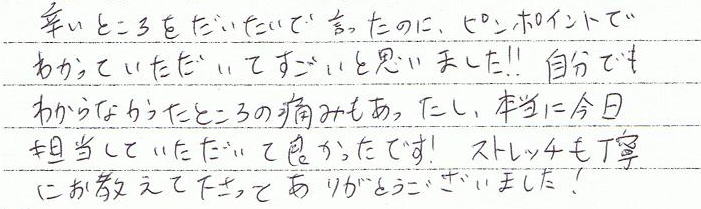 辛いところをだいたいで言ったのに、ピンポイントで
わかっていただいてすごいと思いました!! 自分でも
わからなかったところの痛みもあったし、本当に今日
担当していただいて良かったです! ストレッチも丁寧
にお教えて下さってありがとうございました!